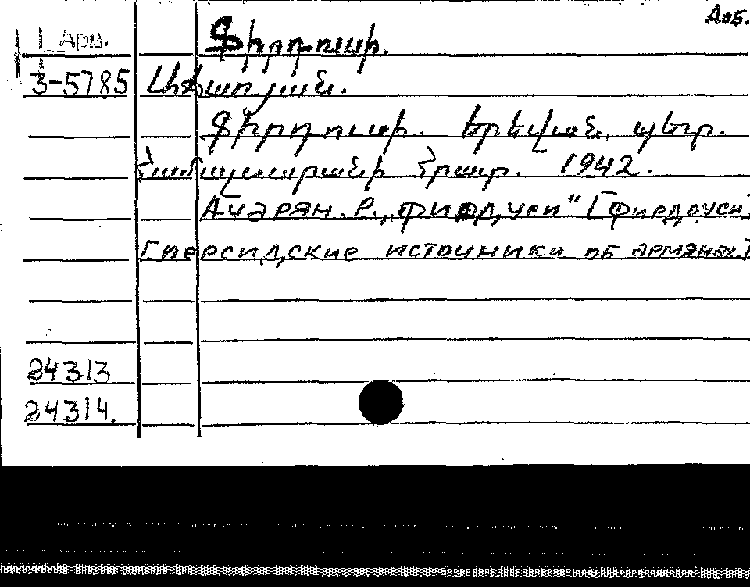 Доб.
1 Арм. Ֆիրդուսի.
3-5785 Աճառյան.
Ֆիրդուսի. Երևան, պետ.
համալսարանի հրատ. 1942.
Ачарян. Р. „Фирдуси" [Фирдоуси]
[персидские источники об армянах]
24313
24314.